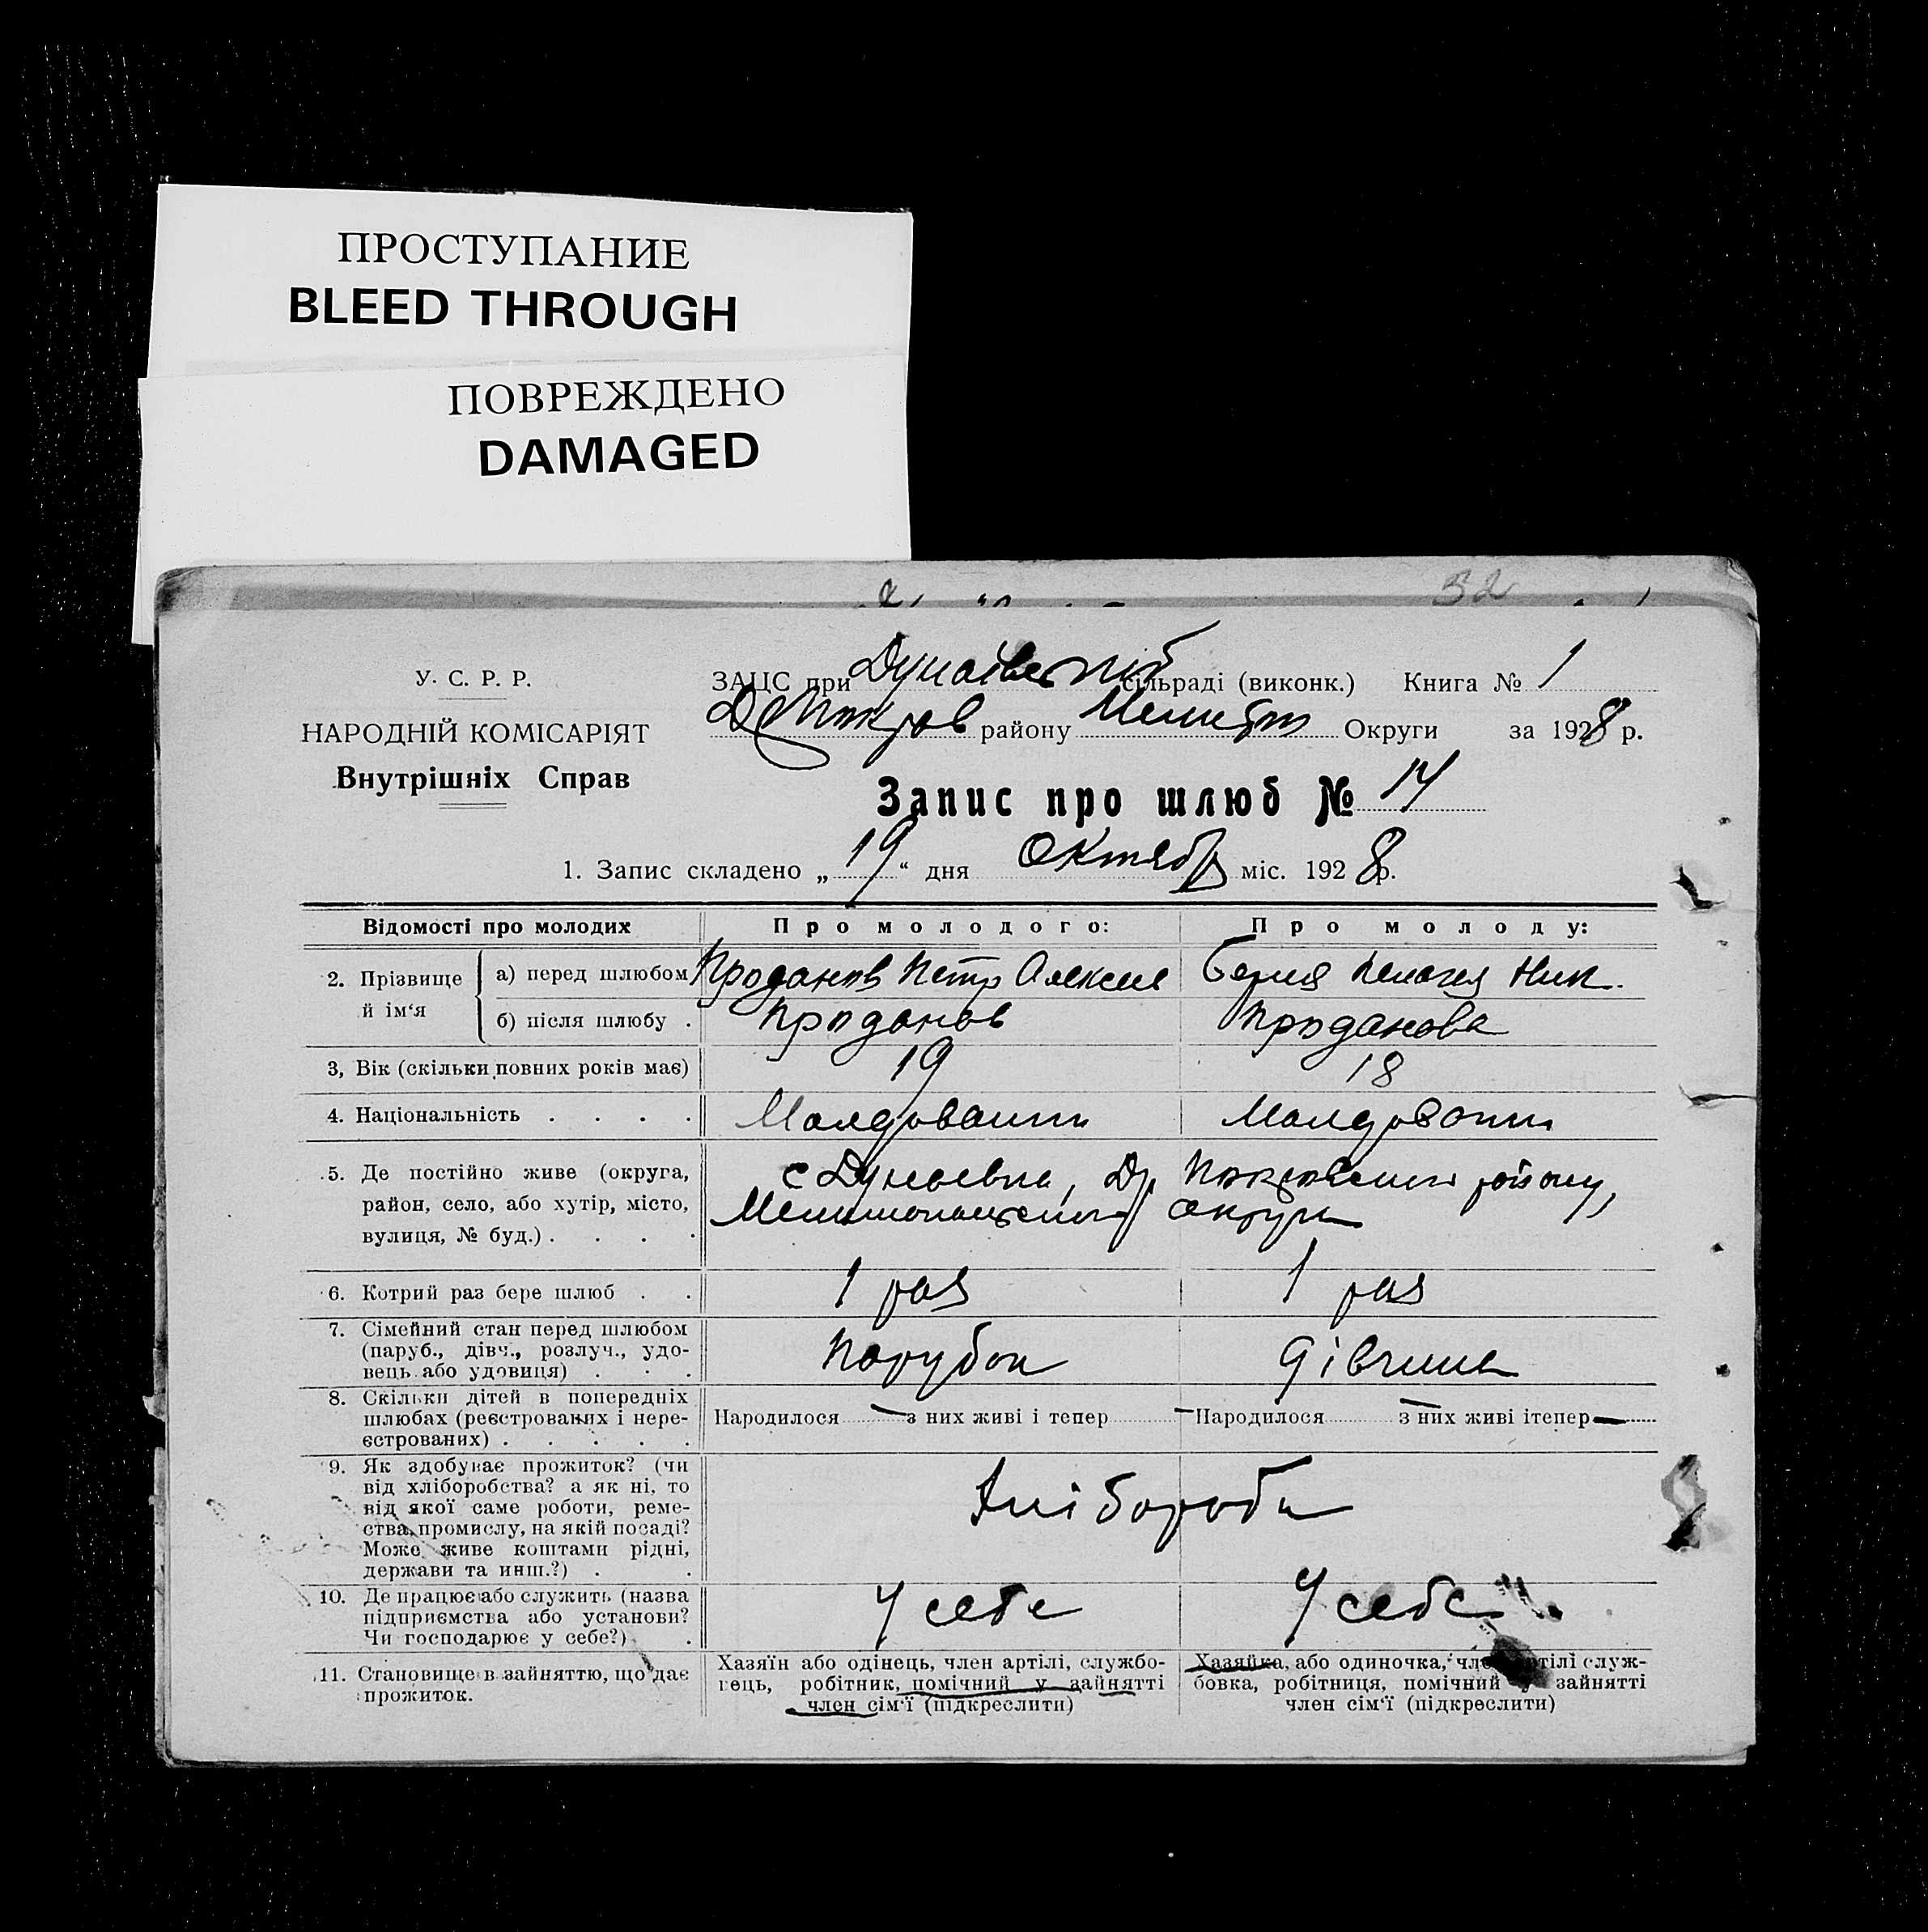 ПРОСТУПАНИЕ
BLEED THROUGH
ПОВРЕЖДЕНО
DAMAGED
32
У. С. Р. Р.
НАРОДНІЙ КОМІСАРІЯТ
Внутрішніх Справ
ЗАЦС при сільраді (виконк.) Книга № 1
району Округи за 1928 р.
Запис про шлюб № 14
1. Запис складено „19“ дня Октябр міс. 1928 р.
Відомості про молодих Про молодого: Про молоду:
2. Прізвище й ім‘я
а) перед шлюбом Проданов Петр Алексее Пелагея Ник.
б) після шлюбу . Проданов Проданова
3, Вік (скільки повних років має) 19 18
4. Національність . . . . Молдован Молдован
5. Де постійно живе (округа, район, село, або хутір, місто, вулиця, № буд.) . . . .
с Дунаевка, району,
округи
6. Котрий раз бере шлюб . . 1 раз 1 раз
7. Сімейний стан перед шлюбом (паруб., дівч., розлуч., удовець або удовиця) . . . Парубок Дівчина
8. Скільки дітей в попередніх шлюбах (реєстрованих і нереєстрованих) . . . . . Народилося — з них живі і тепер — Народилося — з них живі ітепер —
9. Як здобуває прожиток? (чи від хліборобства? а як ні, то від якої саме роботи, ремества, промислу, на якій посаді? Може живе коштами рідні, держави та инш.?) . . Хлібороби
10. Де працює або служить (назва підприємства або установи? Чи господарює у себе?) . У себе У себе
11. Становище в зайняттю, що дає прожиток.
Хазяїн або одінець, член артілі, службовець, робітник, помічний у зайнятті член сім‘ї (підкреслити)
Хазяйка, або одиночка, член артілі службовка, робітниця, помічний у зайнятті член сім‘ї (підкреслити)